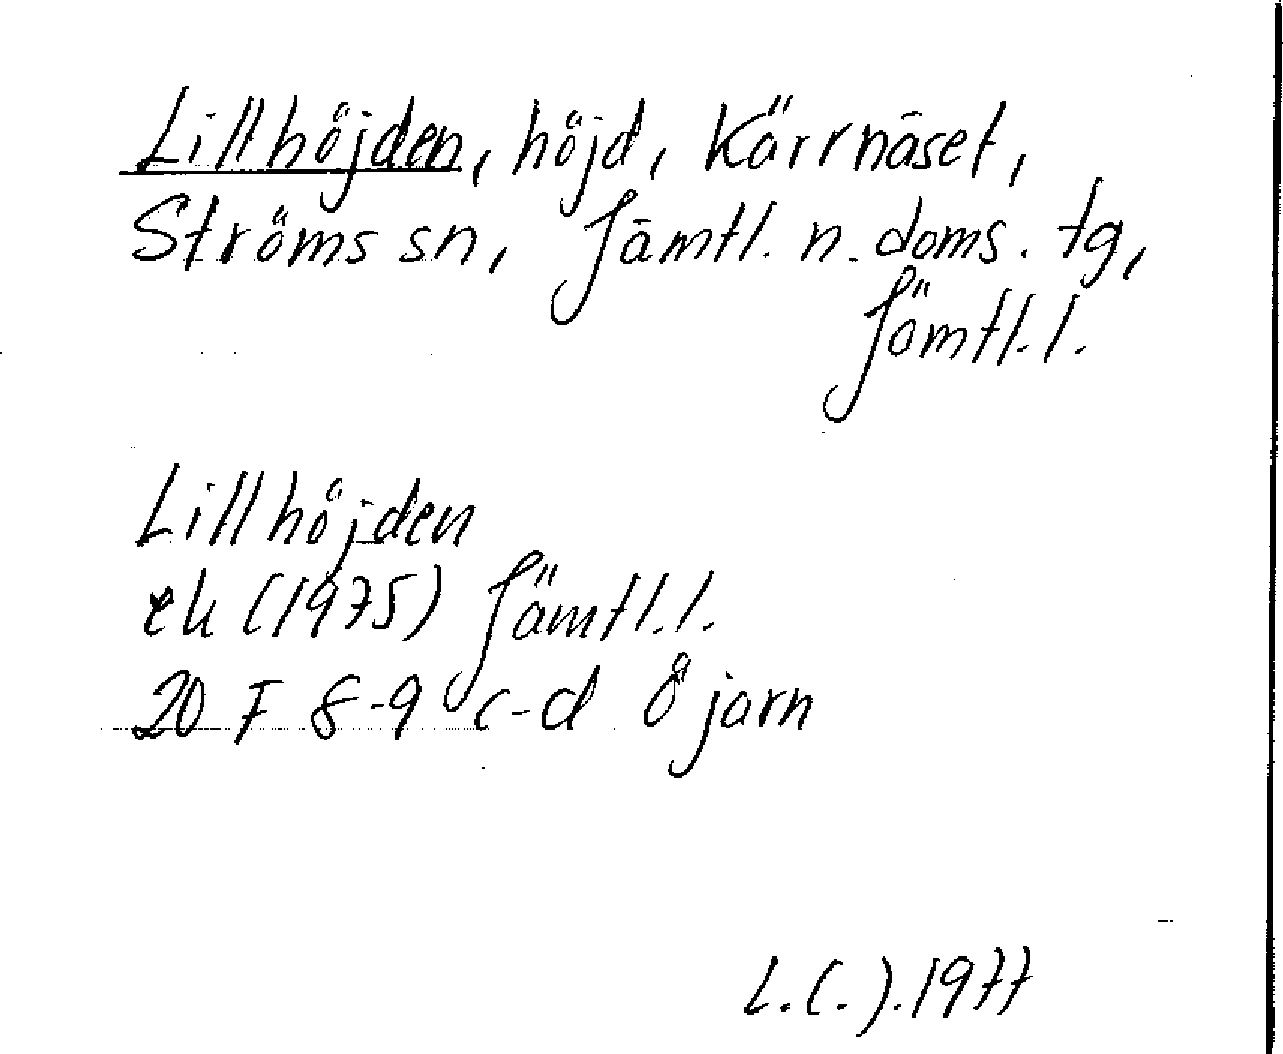 Lillhöjden, höjd, Kärrnäset,
Ströms sn, Jämtl. n. doms. tg,
Jämtl. l.
Lillhöjden
ek (1975) Jämtl. l.
20 F 8-9 c-d Öjarn
L.(.).1977